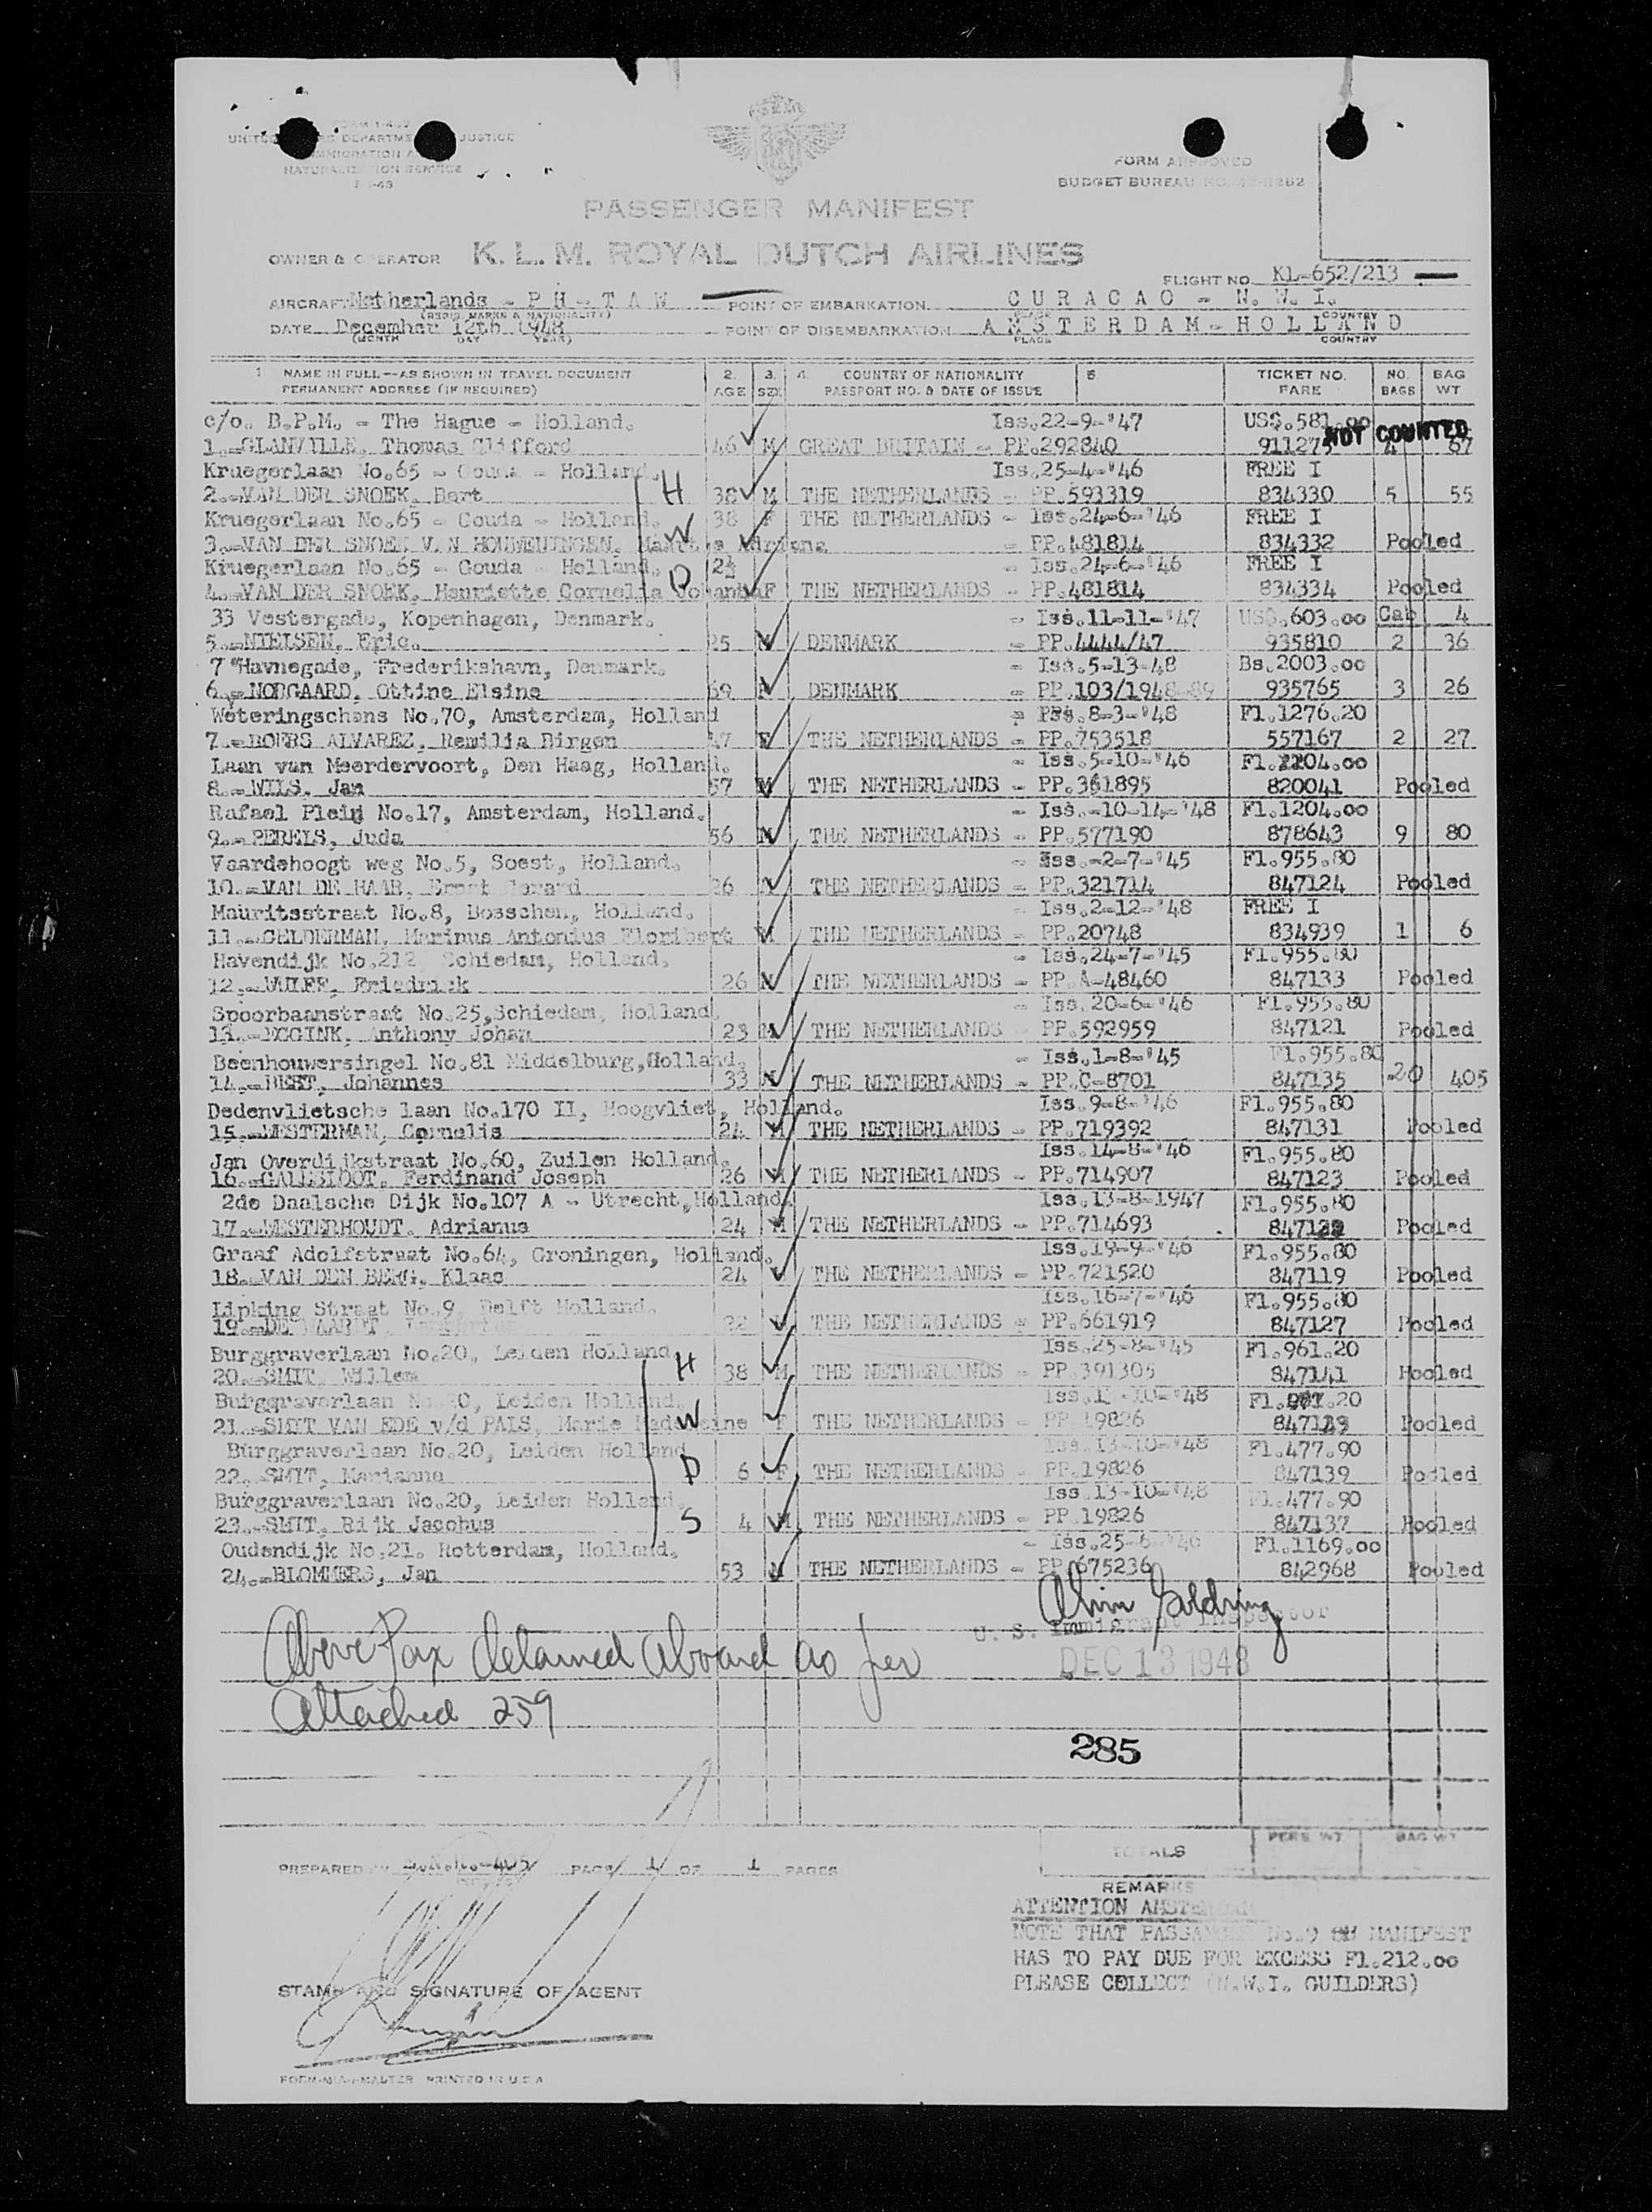 FORM I-4
UNITED DEPARTMENT JUSTICE
IMMIGRATION
NATURALIZATION SERVICE
FORM APPROVED
BUDGET BUREAU NO.
PASSENGER MANIFEST
OWNER & OPERATOR K. L. M. ROYAL DUTCH AIRLINES
FLIGHT NO. KL-652/213
AIRCRAFT Netherlands - P H - T A W POINT OF EMBARKATION C U R A C A O - N. W. I.
(REGIS. MARKS & NATIONALITY) PLACE COUNTRY
DATE December 12th 1948 POINT OF DISEMBARKATION A M S T E R D A M - H O L L A N D
(MONTH DAY YEAR) PLACE COUNTRY
1. NAME IN FULL—AS SHOWN IN TRAVEL DOCUMENT 2. 3. 4. COUNTRY OF NATIONALITY 5. TICKET NO. NO. BAG
PERMANENT ADDRESS (IF REQUIRED) AGE SEX PASSPORT NO. & DATE OF ISSUE FARE BAGS WT
c/o. B.P.M. - The Hague - Holland. Iss.22-9-'47 US$.581.00
1.-GLANVILLE, Thomas Clifford 46 M GREAT BRITAIN - PP.292840 911275 NOT COUNTED 4 67
Kruegerlaan No.65 - Gouda - Holland. Iss.25-4-'46 FREE I
2.-VAN DER SNOEK, Bart H 38 M THE NETHERLANDS - PP.593319 834330 5 55
Kruegerlaan No.65 - Gouda - Holland. W 38 F THE NETHERLANDS - Iss.24-6-'46 FREE I
3.-VAN DER SNOEK V.N HOUWENINGEN, Adriana - PP.481814 834332 Pooled
Kruegerlaan No.65 - Gouda - Holland. D 2½ - Iss.24-6-'46 FREE I
4.-VAN DER SNOEK, Henriette Cornelia Johanna F THE NETHERLANDS - PP.481814 834334 Pooled
33 Vestergade, Kopenhagen, Denmark. - Iss.11-11-'47 US$.603.00 Cab 4
5.-NIELSEN, Eric. 25 M DENMARK - PP.4444/47 935810 2 36
7 Havnegade, Frederikshavn, Denmark. - Iss.5-13-48 Bs.2003.00
6.-NORGAARD, Ottine Elsine 69 F DENMARK - PP.103/1948-89 935765 3 26
Weteringschans No.70, Amsterdam, Holland - Iss.8-3-'48 Fl.1276.20
7.-BOERS ALVAREZ, Remilia Birgen 47 F THE NETHERLANDS - PP.753518 557167 2 27
Laan van Meerdervoort, Den Haag, Holland. - Iss.5-10-'46 Fl.1204.00
8.-NILS, Jan 57 M THE NETHERLANDS - PP.361895 820041 Pooled
Rafael Plein No.17, Amsterdam, Holland. - Iss.-10-14-'48 Fl.1204.00
9.-PERELS, Juda 56 M THE NETHERLANDS - PP.577190 878643 9 80
Vaardehoogt weg No.5, Soest, Holland. - Iss.-2-7-'45 Fl.955.80
10.-VAN DE HAAR, Ernst Gerard 26 M THE NETHERLANDS - PP.321714 847124 Pooled
Mauritsstraat No.8, Bosschen, Holland. - Iss.2-12-'48 FREE I
11.-GELDERMAN, Marinus Antonius Floribert M THE NETHERLANDS - PP.20748 834939 1 6
Havendijk No.212 Schiedam, Holland. - Iss.24-7-'45 Fl.955.80
12.-WULFF, Friedrick 26 M THE NETHERLANDS - PP.A-48460 847133 Pooled
Spoorbaanstraat No.25,Schiedam, Holland. - Iss.20-6-'46 Fl.955.80
13.-EGGINK, Anthony Johan 23 M THE NETHERLANDS PP.592959 847121 Pooled
Beenhouwersingel No.81 Middelburg,Holland. - Iss.1-8-'45 Fl.955.80
14.-BEET, Johannes 33 M THE NETHERLANDS - PP.C-8701 847135 20 405
Dedenvlietsche laan No.170 II, Hoogvliet, Holland. Iss.9-8-'46 Fl.955.80
15.-WESTERMAN, Cornelis 24 M THE NETHERLANDS - PP.719392 847131 Pooled
Jan Overdijkstraat No.60, Zuilen Holland. Iss.14-8-'46 Fl.955.80
16.-GALESLOOT, Ferdinand Joseph 26 M THE NETHERLANDS - PP.714907 847123 Pooled
2de Daalsche Dijk No.107 A - Utrecht,Holland. Iss.13-8-1947 Fl.955.80
17.-WESTERHOUDT. Adrianus 24 M THE NETHERLANDS - PP.714693 Pooled
Graaf Adolfstraat No.64, Groningen, Holland. Iss.19-9-'46 Fl.955.80
18.-VAN DEN BERG, Klaas 24 THE NETHERLANDS - PP.721520 847119 Pooled
Lipking Straat No.9, Delft Holland. Iss.16-7-'46 Fl.955.80
19.-DE WAARDT THE NETHERLANDS - PP.661919 847127 Pooled
Burggraverlaan No.20, Leiden Holland H Iss.25-8-'45 Fl.961.20
20.-SMIT, Willem 38 M THE NETHERLANDS - PP.391305 847141 Pooled
Burggraverlaan No.20, Leiden Holland. W -10-'48
21.-SMIT VAN EDE v/d PALS, Marie Madeleine F THE NETHERLANDS - PP.19826 Pooled
Burggraverlaan No.20, Leiden Holland Iss.13-10-'48 Fl.477.90
22.-SMIT, Marianne D 6 F THE NETHERLANDS - PP.19826 847139 Pooled
Burggraverlaan No.20, Leiden Holland. Iss.13-10-'48 Fl.477.90
23.-SMIT, Rijk Jacobus S 4 M THE NETHERLANDS - PP.19826 847137 Pooled
Oudendijk No.21. Rotterdam, Holland. - Iss.25-6-'46 Fl.1169.00
24.-BLOMMERS, Jan 53 M THE NETHERLANDS - PP.675236 842968 Pooled
Alvin Goldring
U. S. Immigrant Inspector
Above Pax detained aboard as per DEC 13 1948
attached 259
285
PERS WT BAG WT
TOTALS
PREPARED BY PAGE 1 OF 1 PAGES
REMARKS
ATTENTION AMSTERDAM
NOTE THAT PASSANGER No.9 ON MANIFEST
HAS TO PAY DUE FOR EXCESS Fl.212.00
PLEASE COLLECT (N.W.I. GUILDERS)
STAMP AND SIGNATURE OF AGENT
PRINTED IN U.S.A